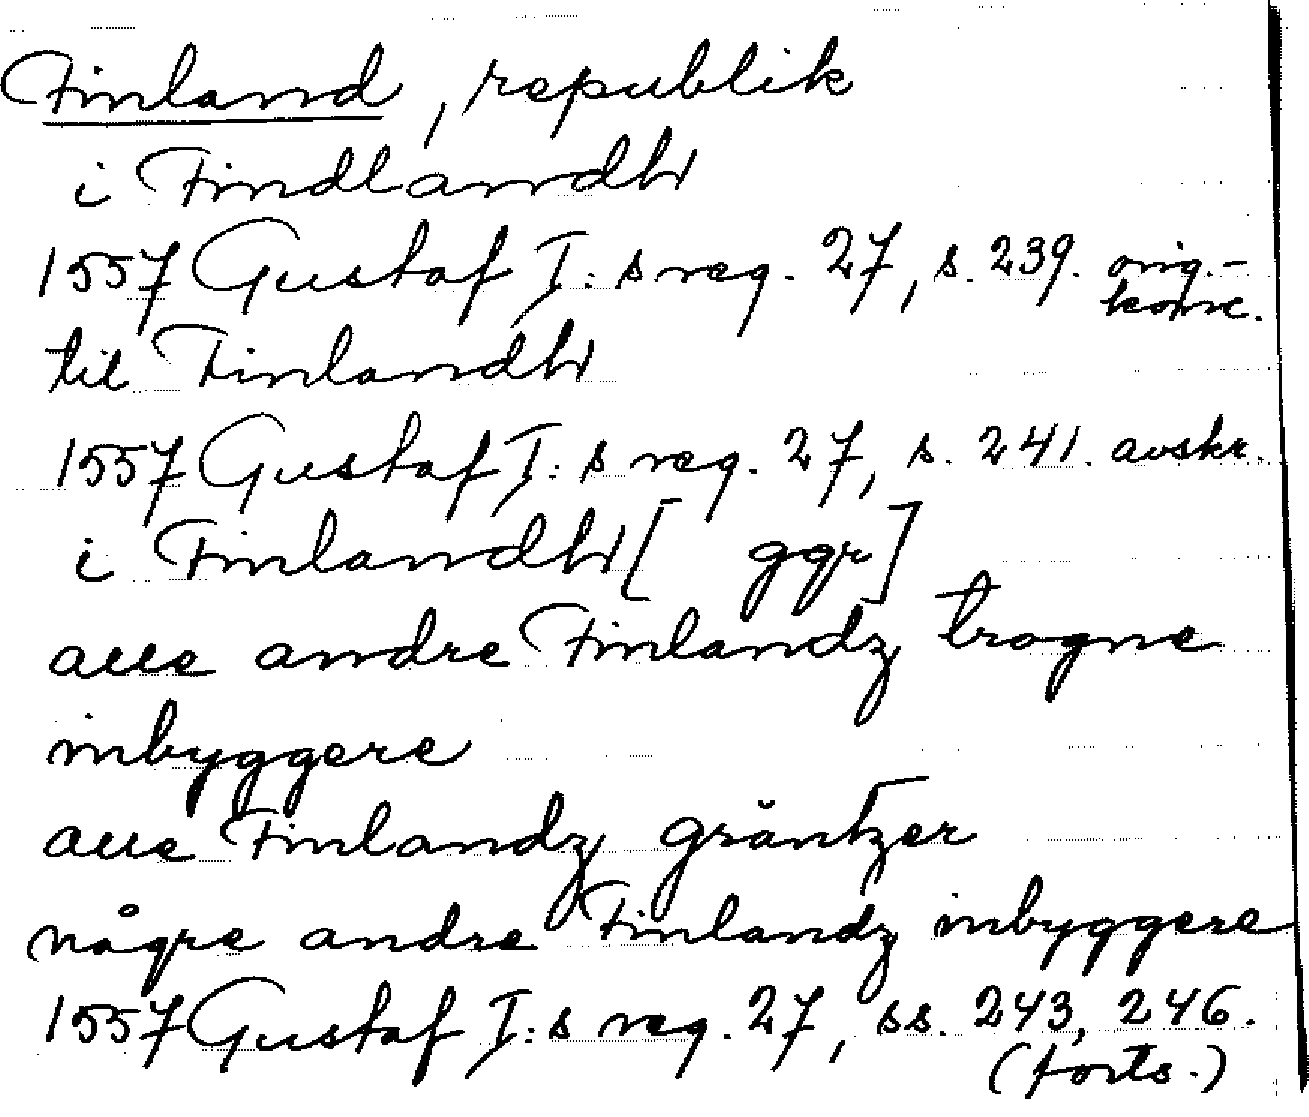 Finland, republik
i Findlandh
1557 Gustaf I:s reg. 27, s. 239. orig.-
konc.
til Finlandh
1557 Gustaf I:s reg. 27, s. 241. avskr.
i Finlandh [ ggr]
alle andre Finlandz trogne
inbyggere
alle Finlandz gräntzer
någre andre Finlandz inbyggere
1557 Gustaf I:s reg. 27, ss. 243, 246.
(forts.)